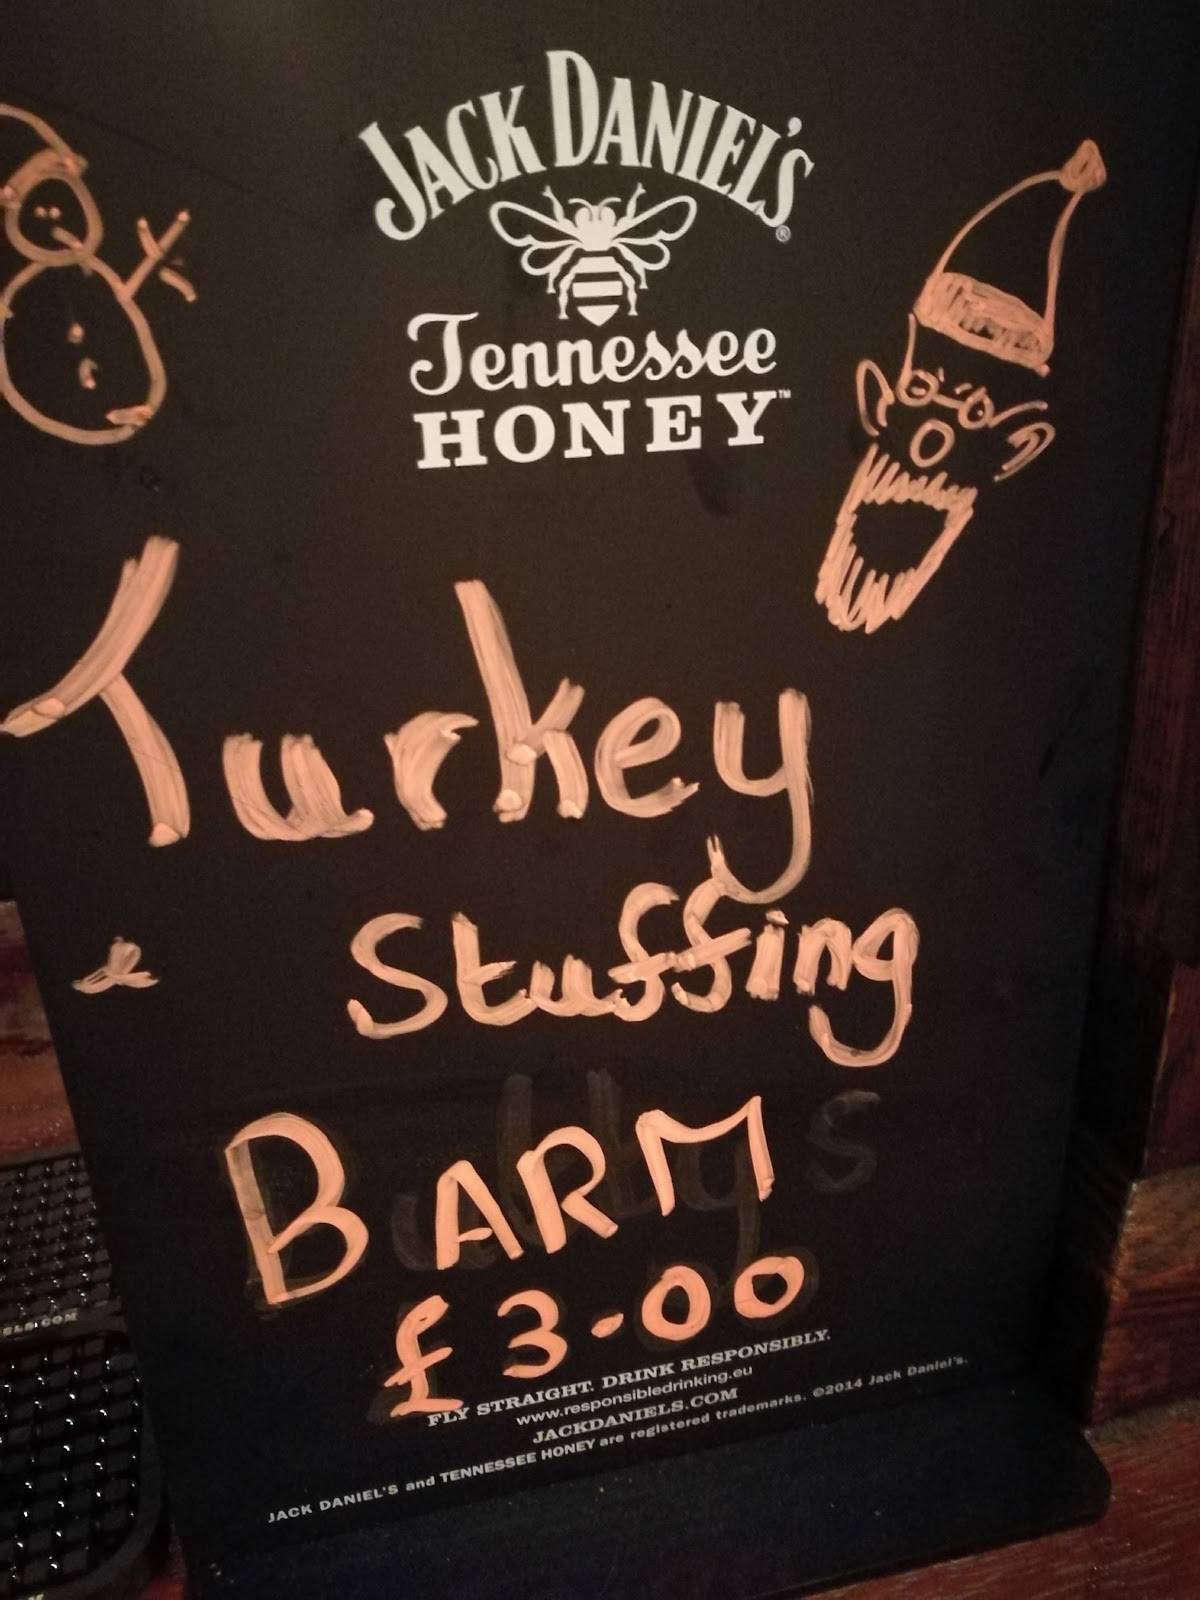 JACK DANIEL'S®
Tennessee
HONEY™
Turkey
& Stuffing
BARM
£3-00
FLY STRAIGHT. DRINK RESPONSIBLY.
www.responsibledrinking.eu
JACKDANIELS.COM
JACK DANIEL'S and TENNESSEE HONEY are registered trademarks. ©2014 Jack Daniel's.